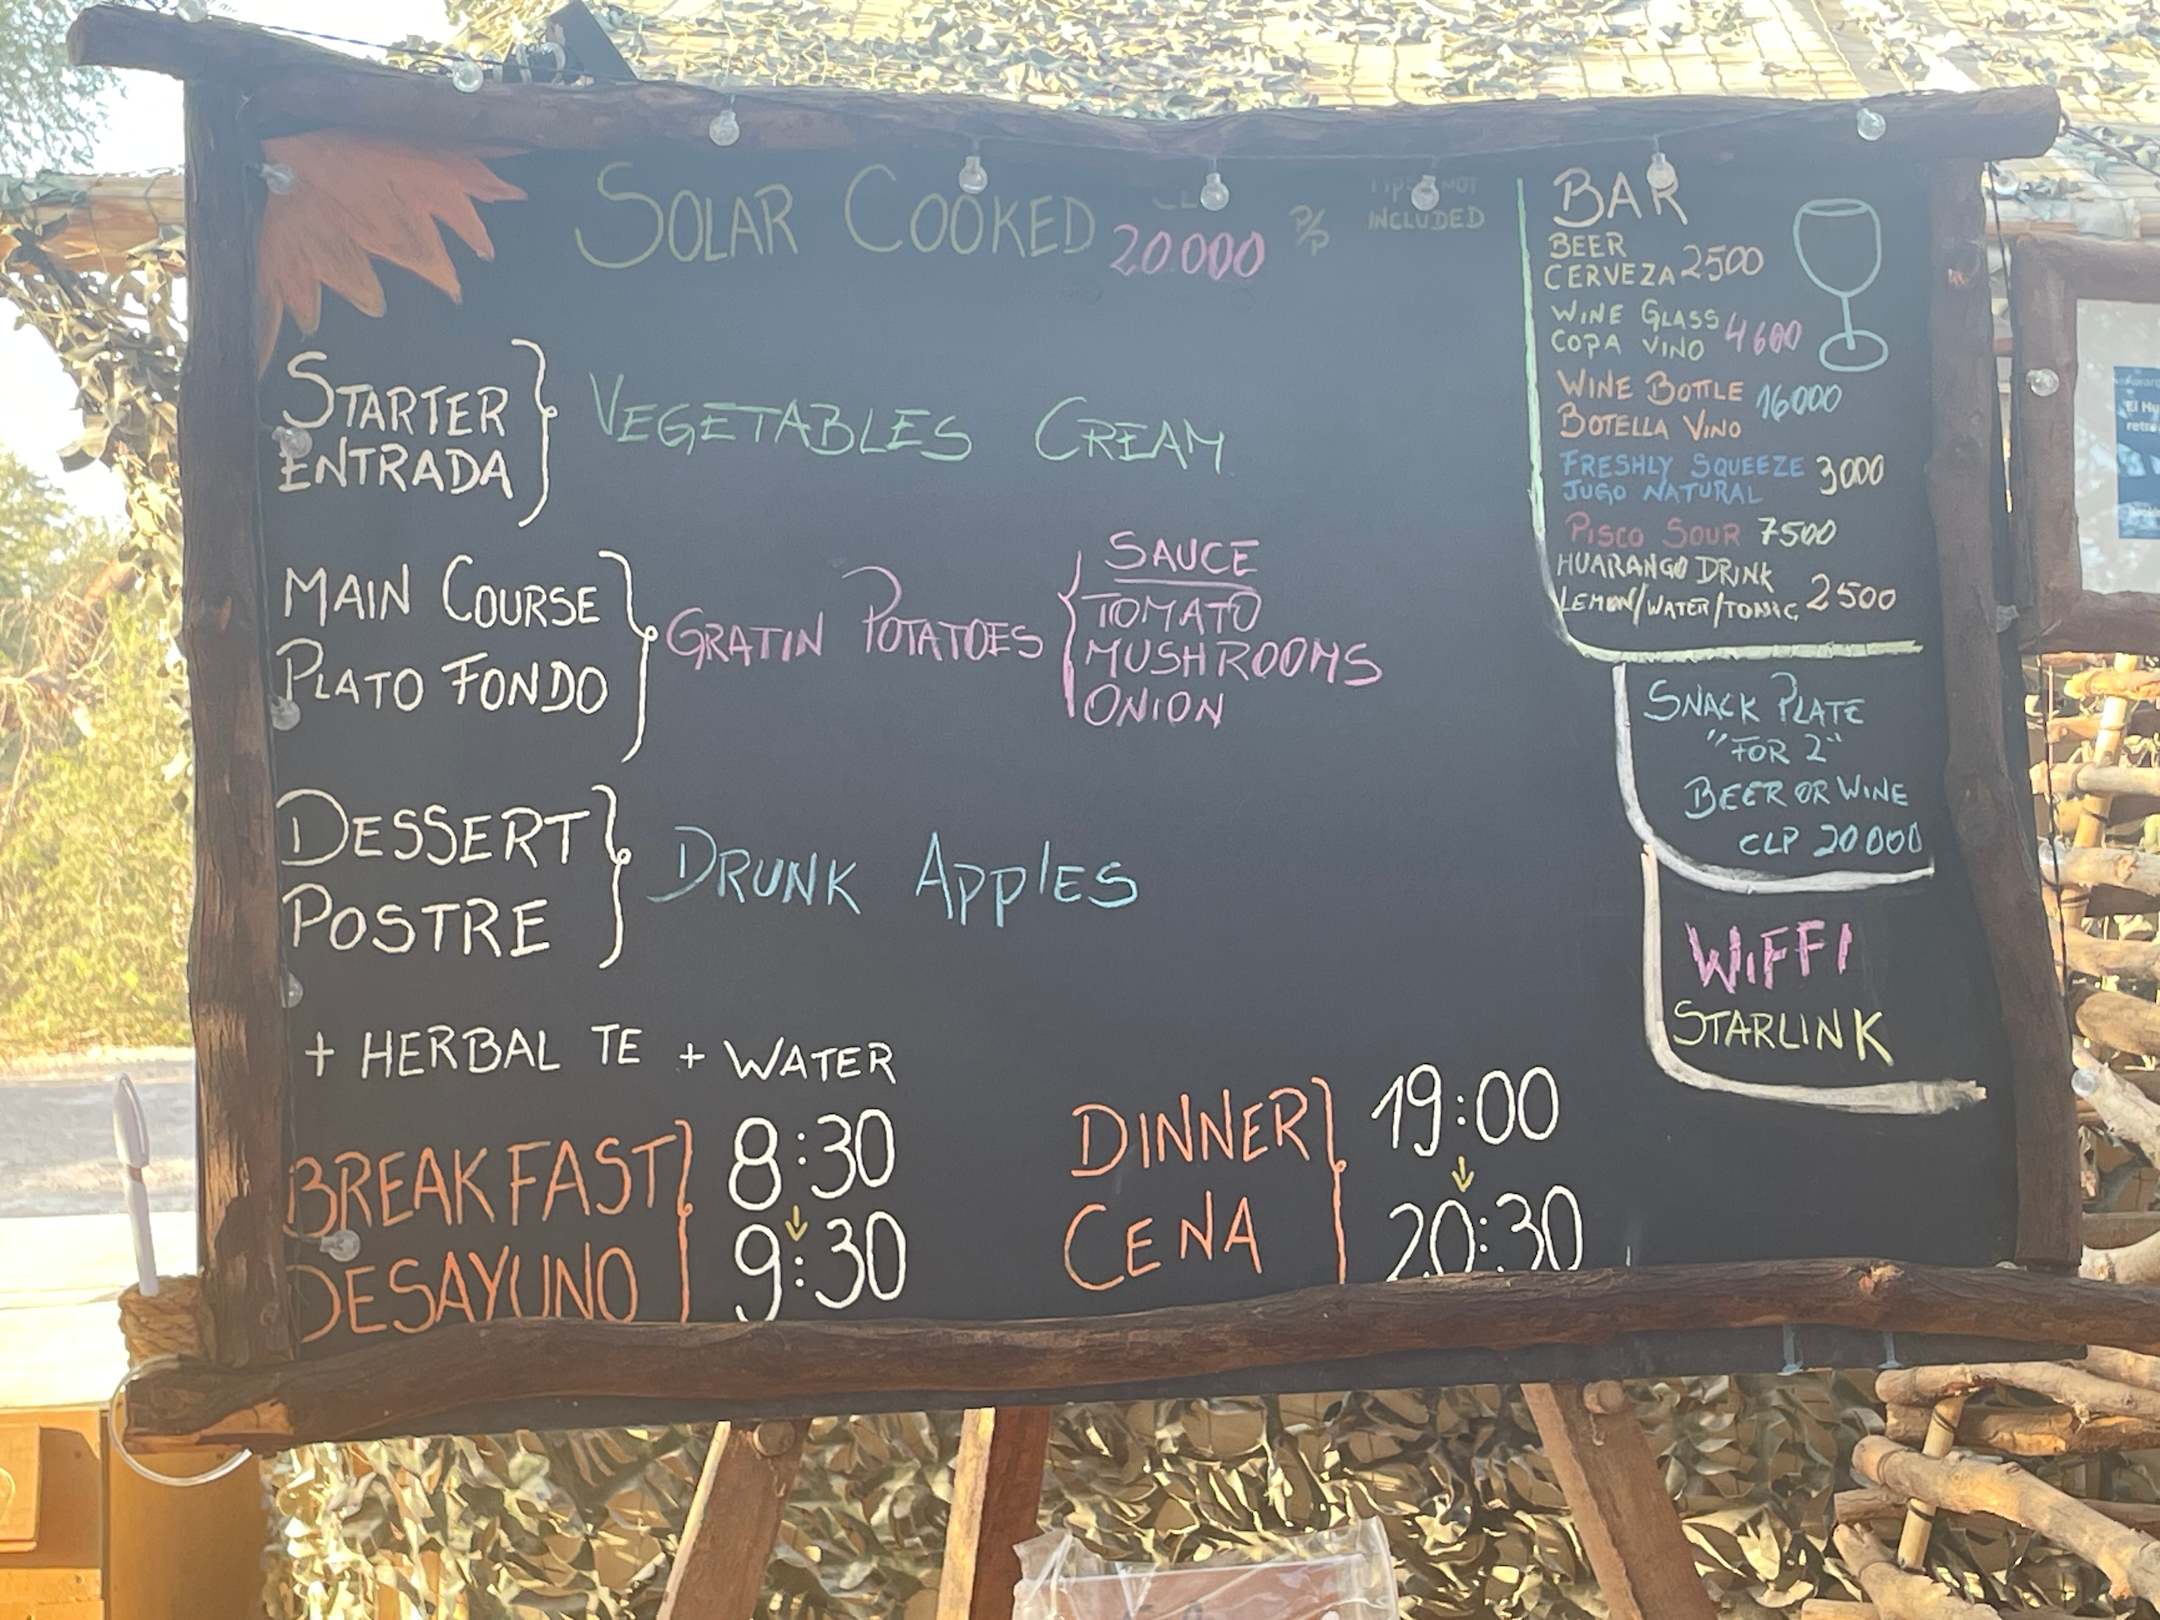 SOLAR COOKED 20000 P/P NOT INCLUDED
STARTER
ENTRADA
VEGETABLES CREAM
MAIN COURSE
PLATO FONDO
GRATIN POTATOES
SAUCE
TOMATO
MUSHROOMS
ONION
DESSERT
POSTRE
DRUNK APPlES
+ HERBAL TE + WATER
BREAKFAST
DESAYUNO
8:30
9:30
DINNER
CENA
19:00
20:30
BAR
BEER
CERVEZA 2500
WINE GLASS
COPA VINO 4600
WINE BOTTLE
BOTELLA VINO 16000
FRESHLY SQUEEZE
JUGO NATURAL 3000
PISCO SOUR 7500
HUARANGO DRINK
LEMON/WATER/TONIC 2500
SNACK PLATE
"FOR 2"
BEER OR WINE
CLP 20000
WIFFI
STARLINK
El Hu